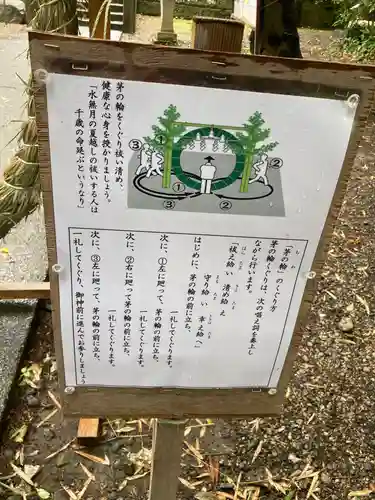 茅の輪をくぐり祓い清め、
健康な心身を授かりましょう。
「水無月の夏越しの祓いする人は
千歳の命延ぶというなり」
①
②
③
①
②
③
「茅の輪」のくぐり方
茅の輪くぐりは、次の唱え詞を奏上し
ながら行います。
「祓え給い 清め給え
守り給い 幸え給へ」
はじめに、茅の輪の前に立ち、
一礼してくぐります。
次に、①左に廻って、茅の輪の前に立ち、
一礼してくぐります。
次に、②右に廻って茅の輪の前に立ち、
一礼してくぐります。
次に、③左に廻って、茅の輪の前に立ち、
一礼してくぐり、御神前に進んでお参りしましょう